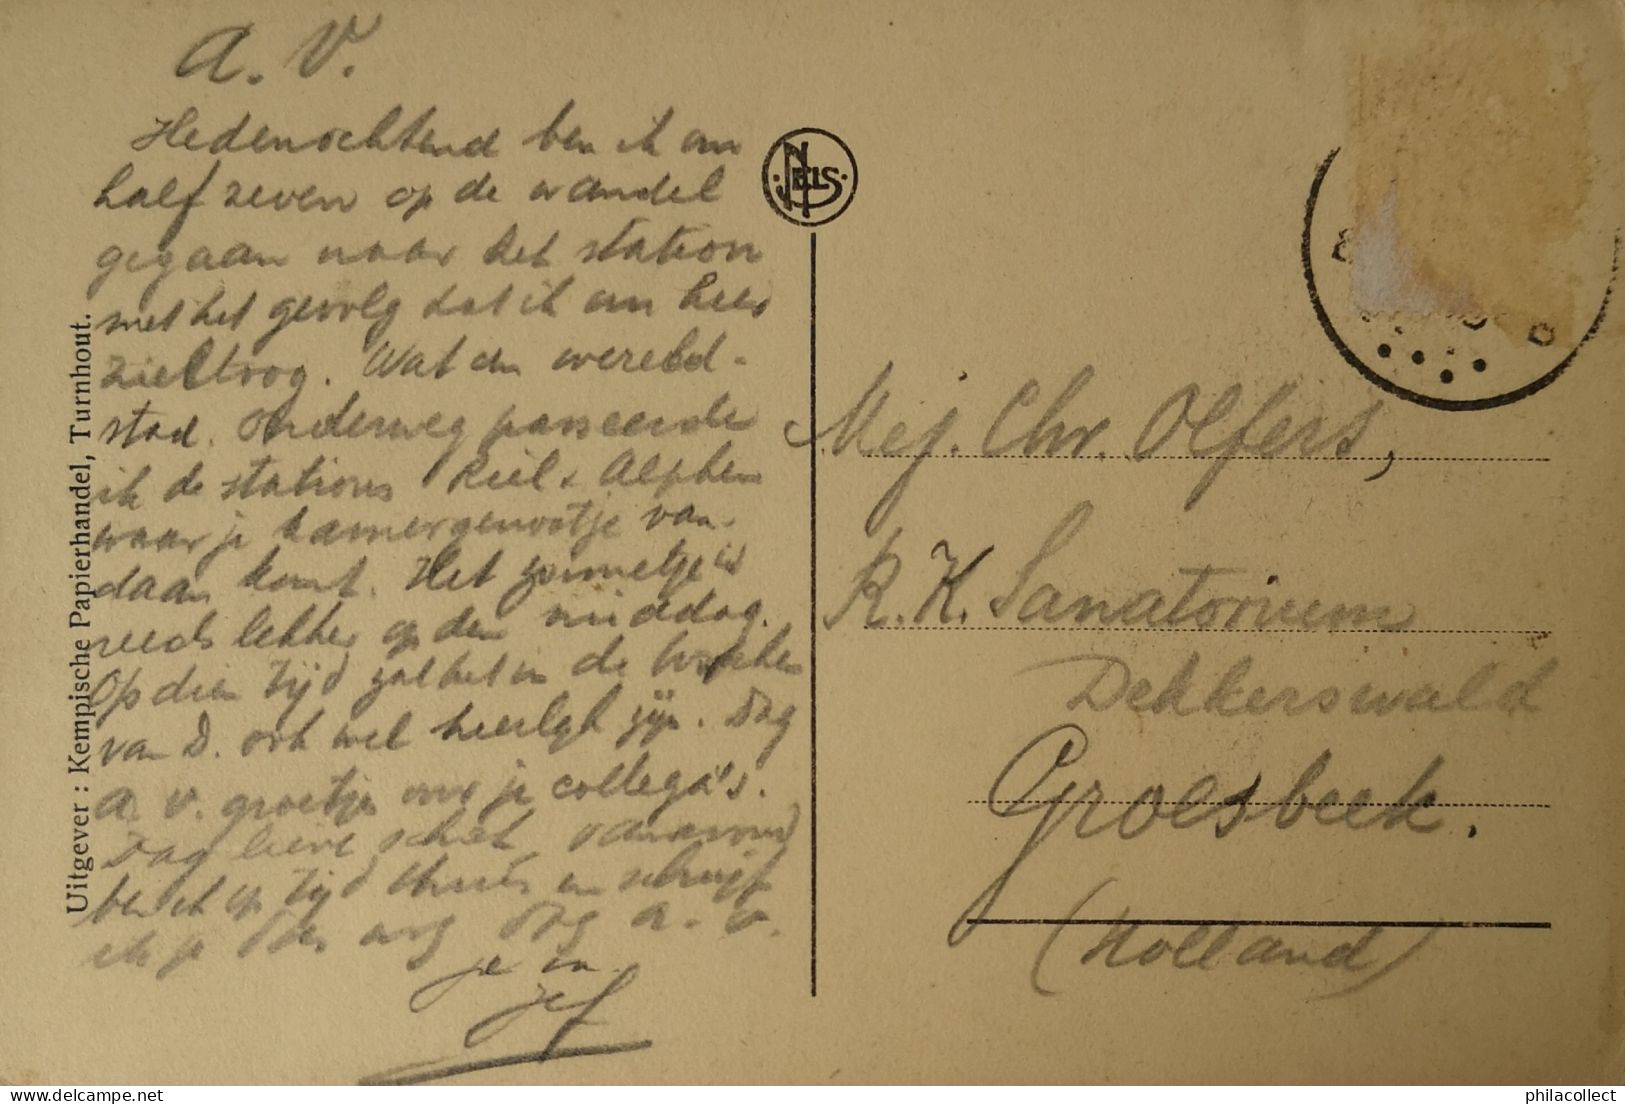 A. V.
Hedenochtend ben ik om
half zeven op de wandel
gegaan naar het station
met het gevolg dat ik om hees
zieltoog. Wat een wereld-
stad. Onderweg passeerde
ik de stations Riel & Alphen
waar je kamergenootje van-
daan komt. Het zonnetje is
reeds lekker op den middag.
Op dien tijd zal het in de bosschen
van D. ook wel heerlijk zijn. Dag
A. V. groetjes voor je collega's.
Dag lieve schat, vanavond
ben ik op tijd thuis en schrijf
ik je dan nog Dag A. V.
je
Jef
Uitgever : Kempische Papierhandel, Turnhout.
NELS
Mej. Chr. Olfers,
R. K. Sanatorium
Dekkerswald
Groesbeek.
(Holland)
philacollect